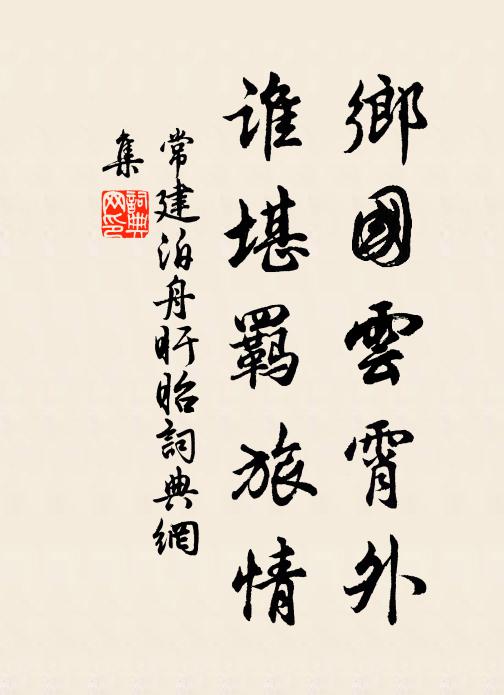 鄉國雲霄外
誰堪羈旅情
常建泊舟盱眙詞典網
集
詞典
网印